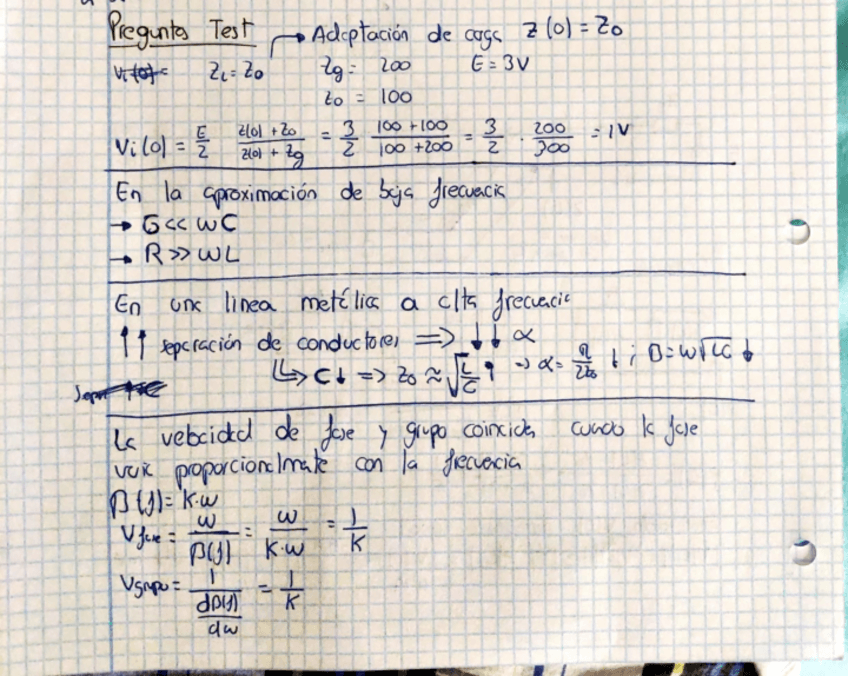 Preguntas Test → Adaptación de carga Z(0) = Z₀
Vi(0)= Z_L = Z₀ Zg = 200 E = 3V
Z₀ = 100
Vi(0) = E/2 (Z(0) + Z₀)/(Z(0) + Zg) = 3/2 (100 + 100)/(100 + 200) = 3/2 · 200/300 = 1V
En la aproximación de baja frecuencia
→ G << WC
→ R >> WL
En una linea metálica a alta frecuencia
↑↑ separación de conductores ⇒ ↓↓ α
↳ C↓ ⇒ Z₀ ≈ √(L/C) ↑ ⇒ α = R/2Z₀ ↓ ; β = W√LC ↓
La velocidad de fase y grupo coinciden cuando la fase
varia proporcionalmente con la frecuencia
β(f) = K·w
V fase = w/β(f) = w/(K·w) = 1/K
V grupo = 1/(dβ(f)/dw) = 1/K